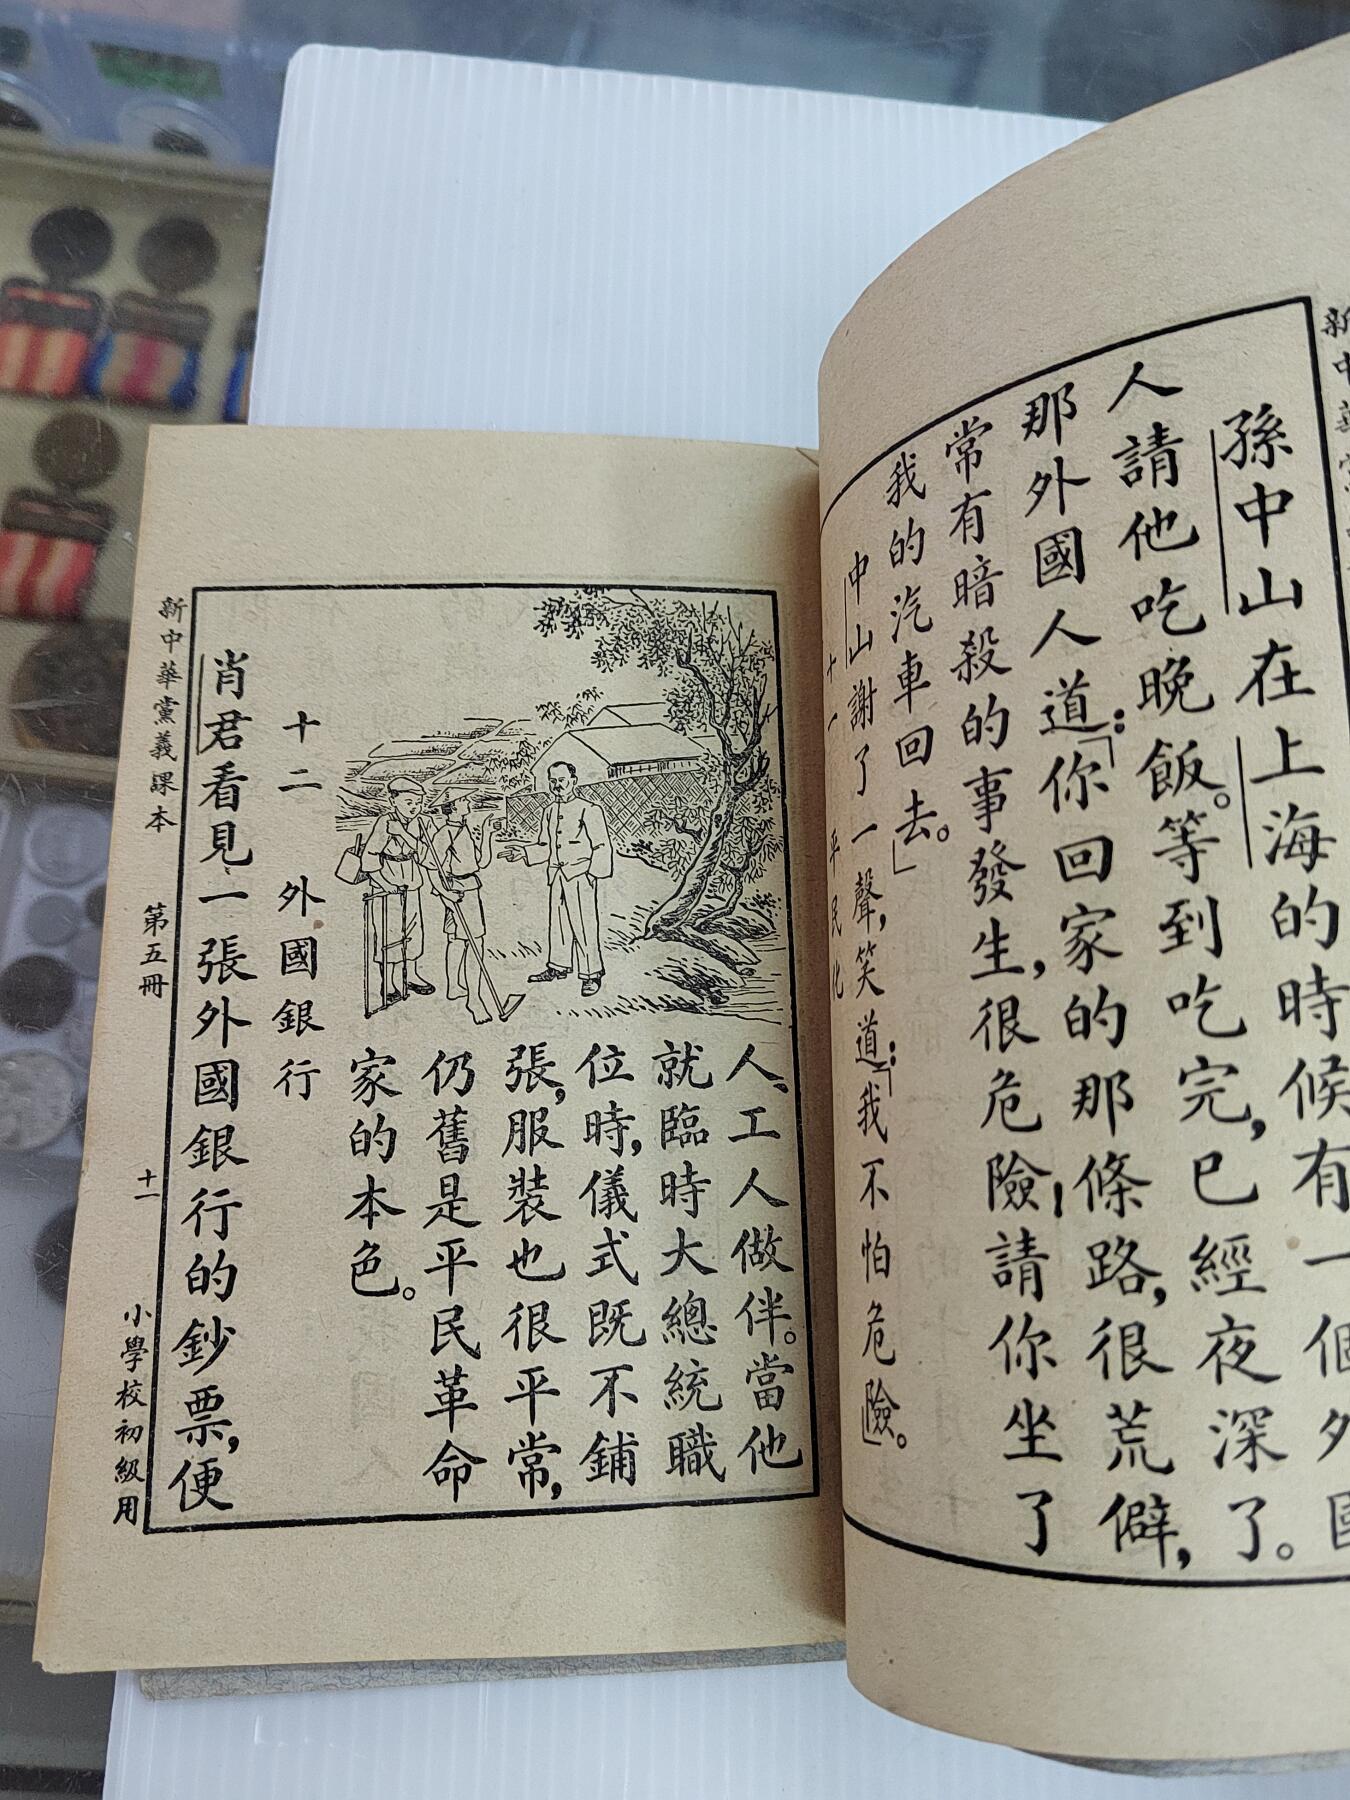 孫中山在上海的時候有一個外國
人請他吃晚飯。等到吃完，已經夜深了。
那外國人道：「你回家的那條路，很荒僻，
常有暗殺的事發生，很危險！請你坐了
我的汽車回去。」
中山謝了一聲，笑道：「我不怕危險。」
十一 平民化
人、工人做伴。當他
就臨時大總統職
位時，儀式既不鋪
張，服裝也很平常，
仍舊是平民革命
家的本色。
十二 外國銀行
肖君看見一張外國銀行的鈔票，便
新中華黨義課本 第五冊 十一 小學校初級用